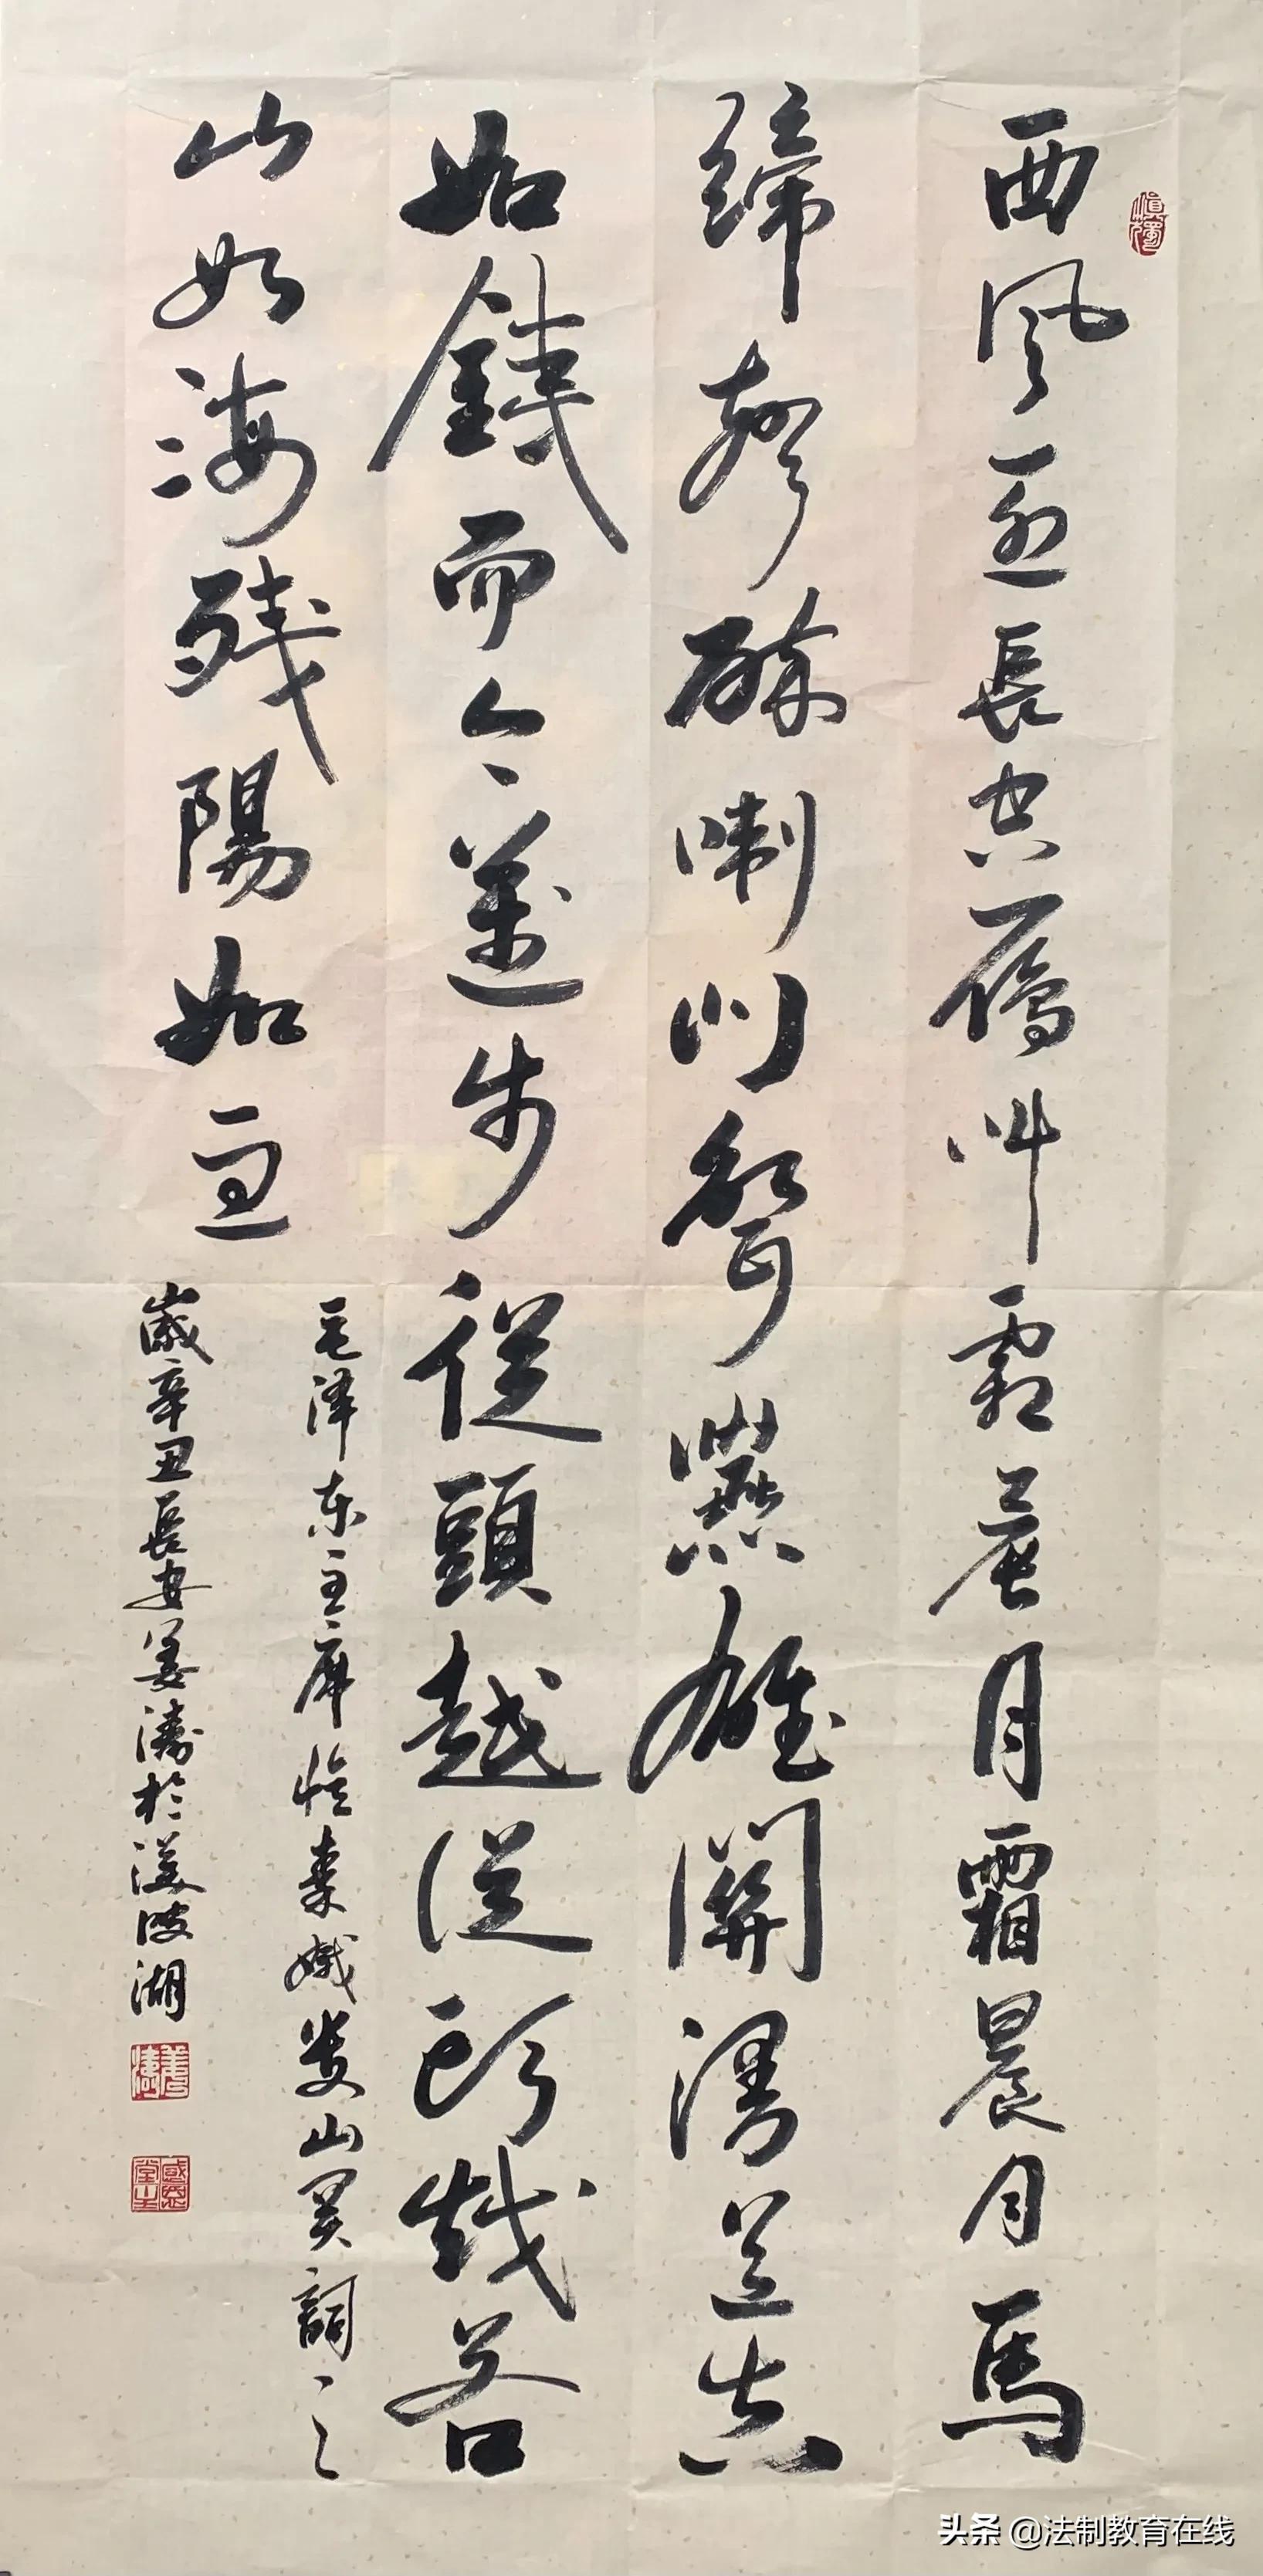 西风烈長空雁叫霜晨月霜晨月馬
蹄聲碎喇叭聲嚥雄關漫道真
如鐵而今邁步從頭越從頭越蒼
山如海殘陽如血
毛泽东主席憶秦娥娄山关詞一首
歲辛丑長安姜濤於渼陂湖
头条 @法制教育在线